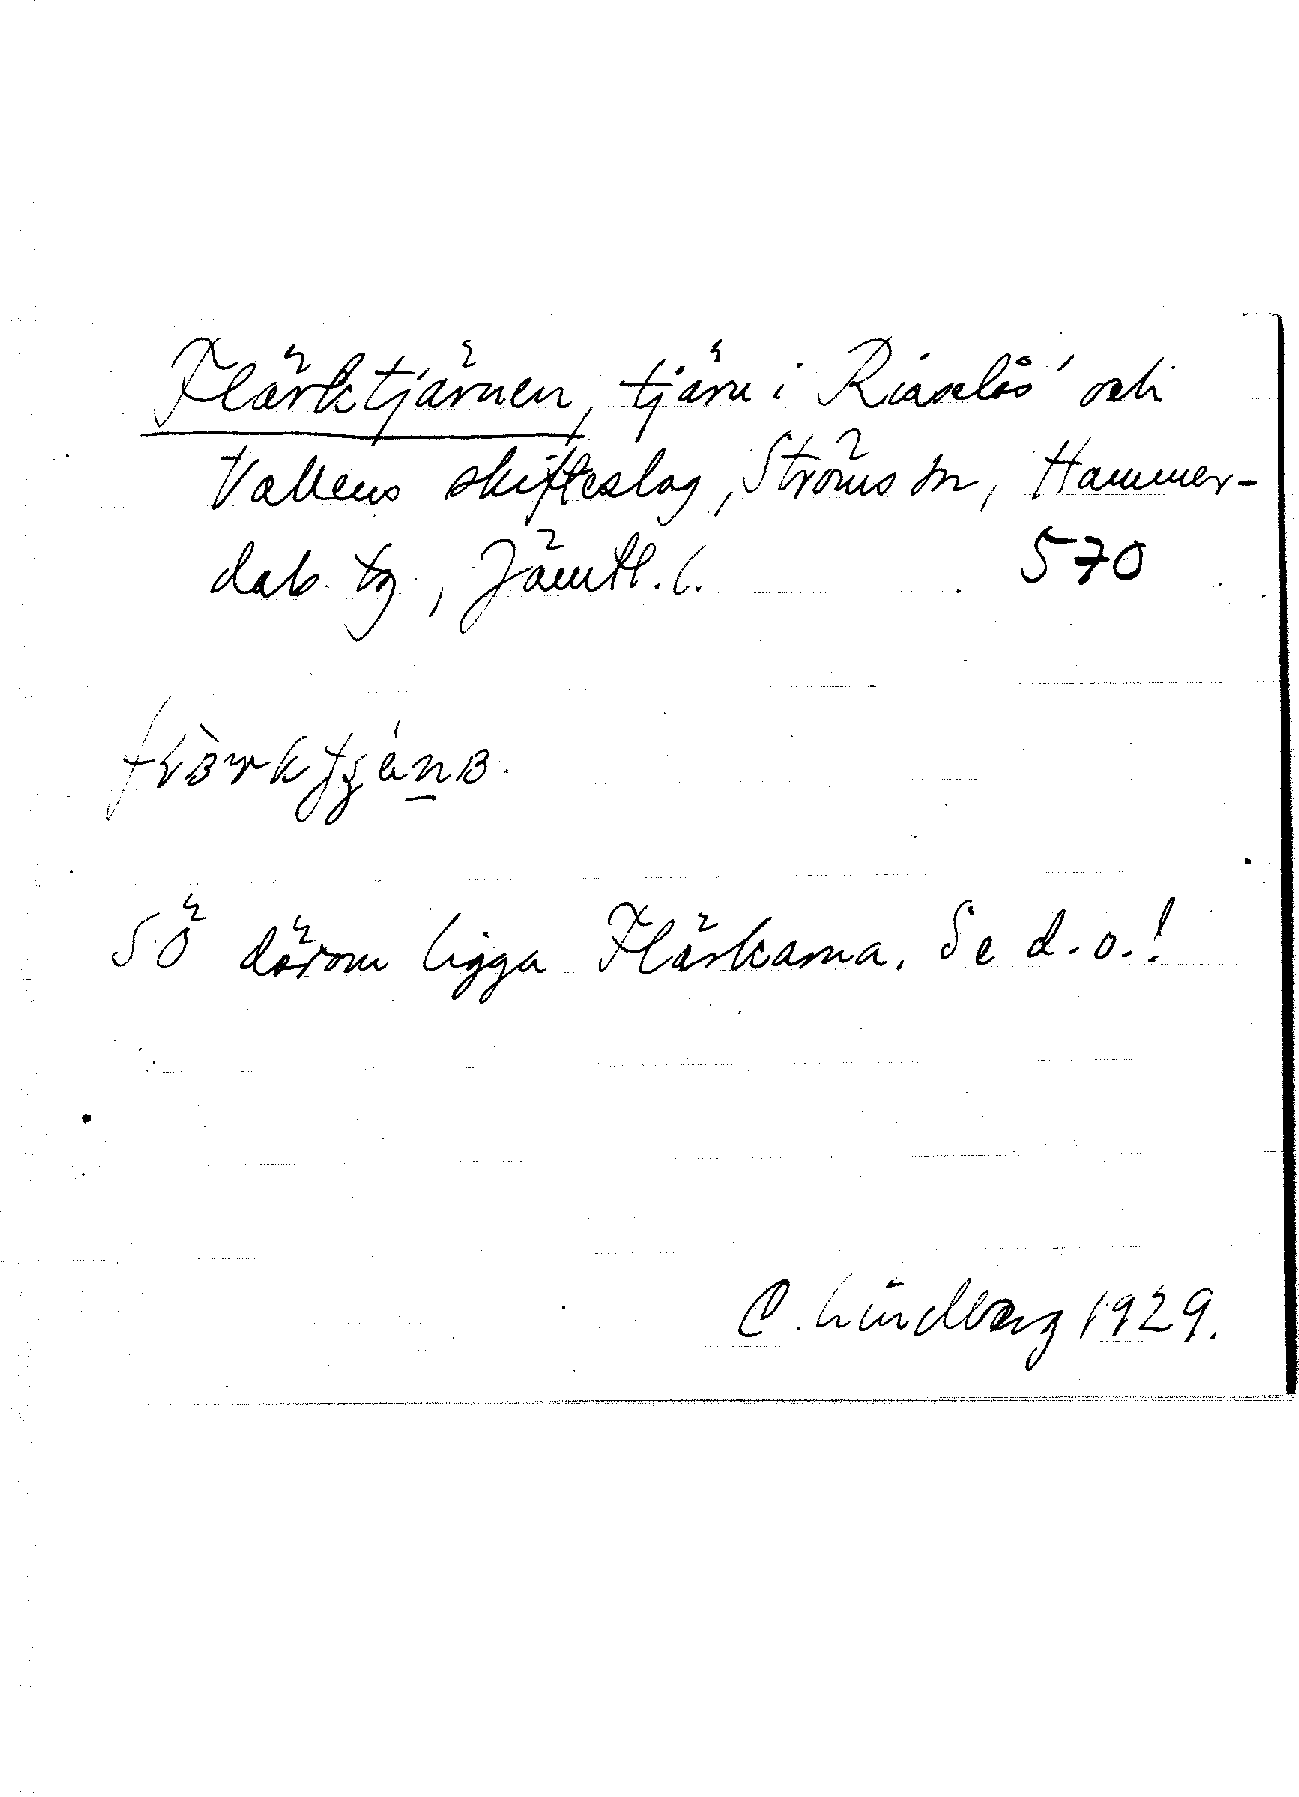 Flärktjärnen, tjärn i Risselås' och
Vallens skifteslag, Ströms sn, Hammer-
dals tg, Jämtl. l. 570
SÖ därom ligga Flärkarna. Se d.o.!
C. Lindberg 1929.